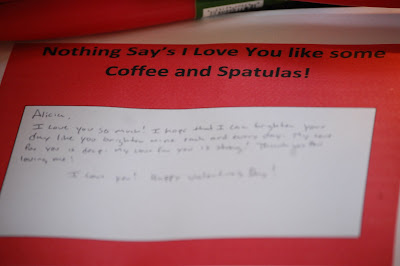 Nothing Say's I Love You like some
Coffee and Spatulas!
Alicia,
I love you so much! I hope that I can brighten your
day like you brighten mine each and every day. My love
for you is deep. My love for you is strong! Thank you for
loving me!
I love you! Happy Valentine's Day!